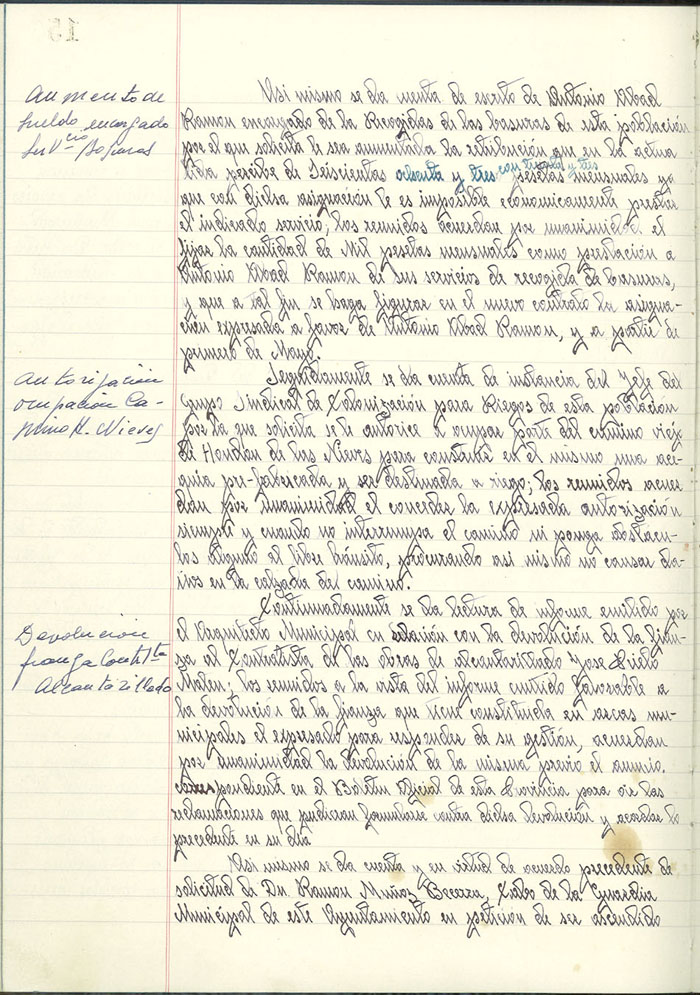 15
Aumento de
sueldo encargado
Servcio Basuras
Asi mismo se da cuenta de escrito de Antonio Abad
Ramon encargado de la Recogidas de las basuras de esta población
por el que solicita le sea aumentada la retribución que en la actua
lida percibe de Seiscientas ochenta y tres con treinta y tres pesetas mensuales ya
que con dicha asignación le es imposible economicamente prestar
el indicado servicio; los reunidos acuerdan por unanimidad el
fijar la cantidad de Mil pesetas mensuales como prestación a
Antonio Abad Ramon de sus servicios de recogida de basuras,
y que a tal fin se haga figurar en el nuevo contrato la asigna-
ción expresada a favor de Antonio Abad Ramon, y a partir de
primero de Mayo.
Autorización
ocupación Ca-
mino H. Nieves
Seguidamente se da cuenta de instancia del Jefe del
Grupo Sindical de Colonización para Riegos de esta población
por la que solicita se le autorice a ocupar parte del camino viejo
de Hondon de las Nieves para construir en el mismo una ace-
quia pre-fabricada y ser destinada a riego; los reunidos acuer
dan por unanimidad el conceder la expresada autorización
siempre y cuanto no interrumpa el camino ni ponga obstacu-
los alguno al libre tránsito, procurando asi mismo no causar da-
ños en la calzada del camino.
Devolucion
fianza Contta
Alcantarillado
Continuadamente se da lectura de informe emitido por
el Arquitecto Municipal en relación con la devolución de la fian-
za al Contratista de las obras de alcantarillado Jose Cieto
Maten; los reunidos a la vista del informe emitido favorable a
la devolucion de la fianza que tiene constituida en arcas mu-
nicipales el expresado para responder de su gestión, acuerdan
por unanimidad la devolución de la misma previo el anuncio.
correspondiente en el Boletin Oficial de esta Provincia para oir las
reclamaciones que pudieran formularse contra dicha devolución y acordar lo
procedente en su dia
Asi mismo se da cuenta y en virtud de acuerdo precedente de
solicitud de Dn Ramon Muñoz Becerra, Cabo de la Guardia
Municipal de este Ayuntamiento en peticion de ser ascendido